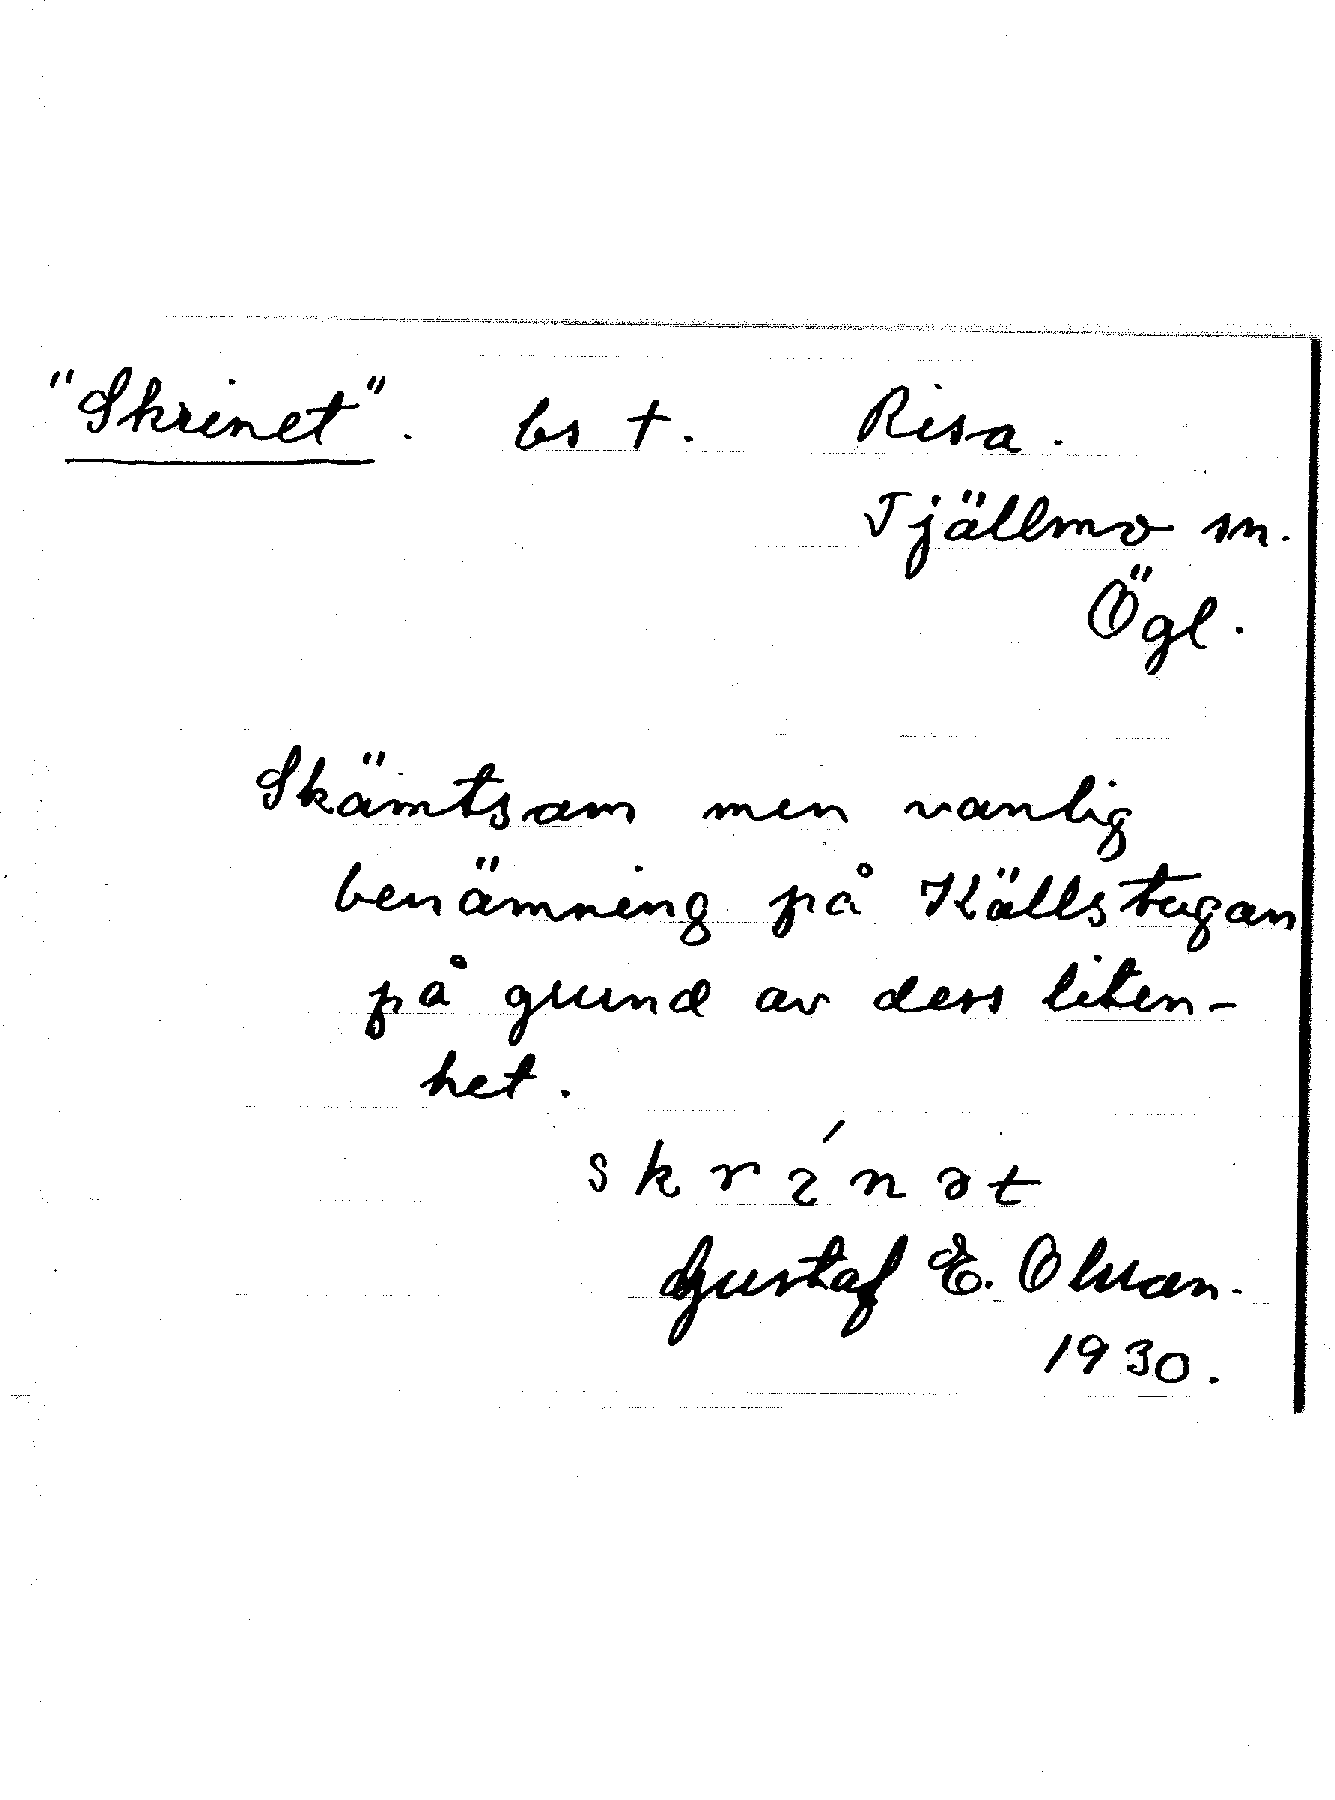 "Skrinet". bs †. Risa.
Tjällmo sn.
Ögl.
Skämtsam men vanlig
benämning på Källstugan
på grund av dess liten-
het.
skrínət
Gustaf E. Olsson.
1930.